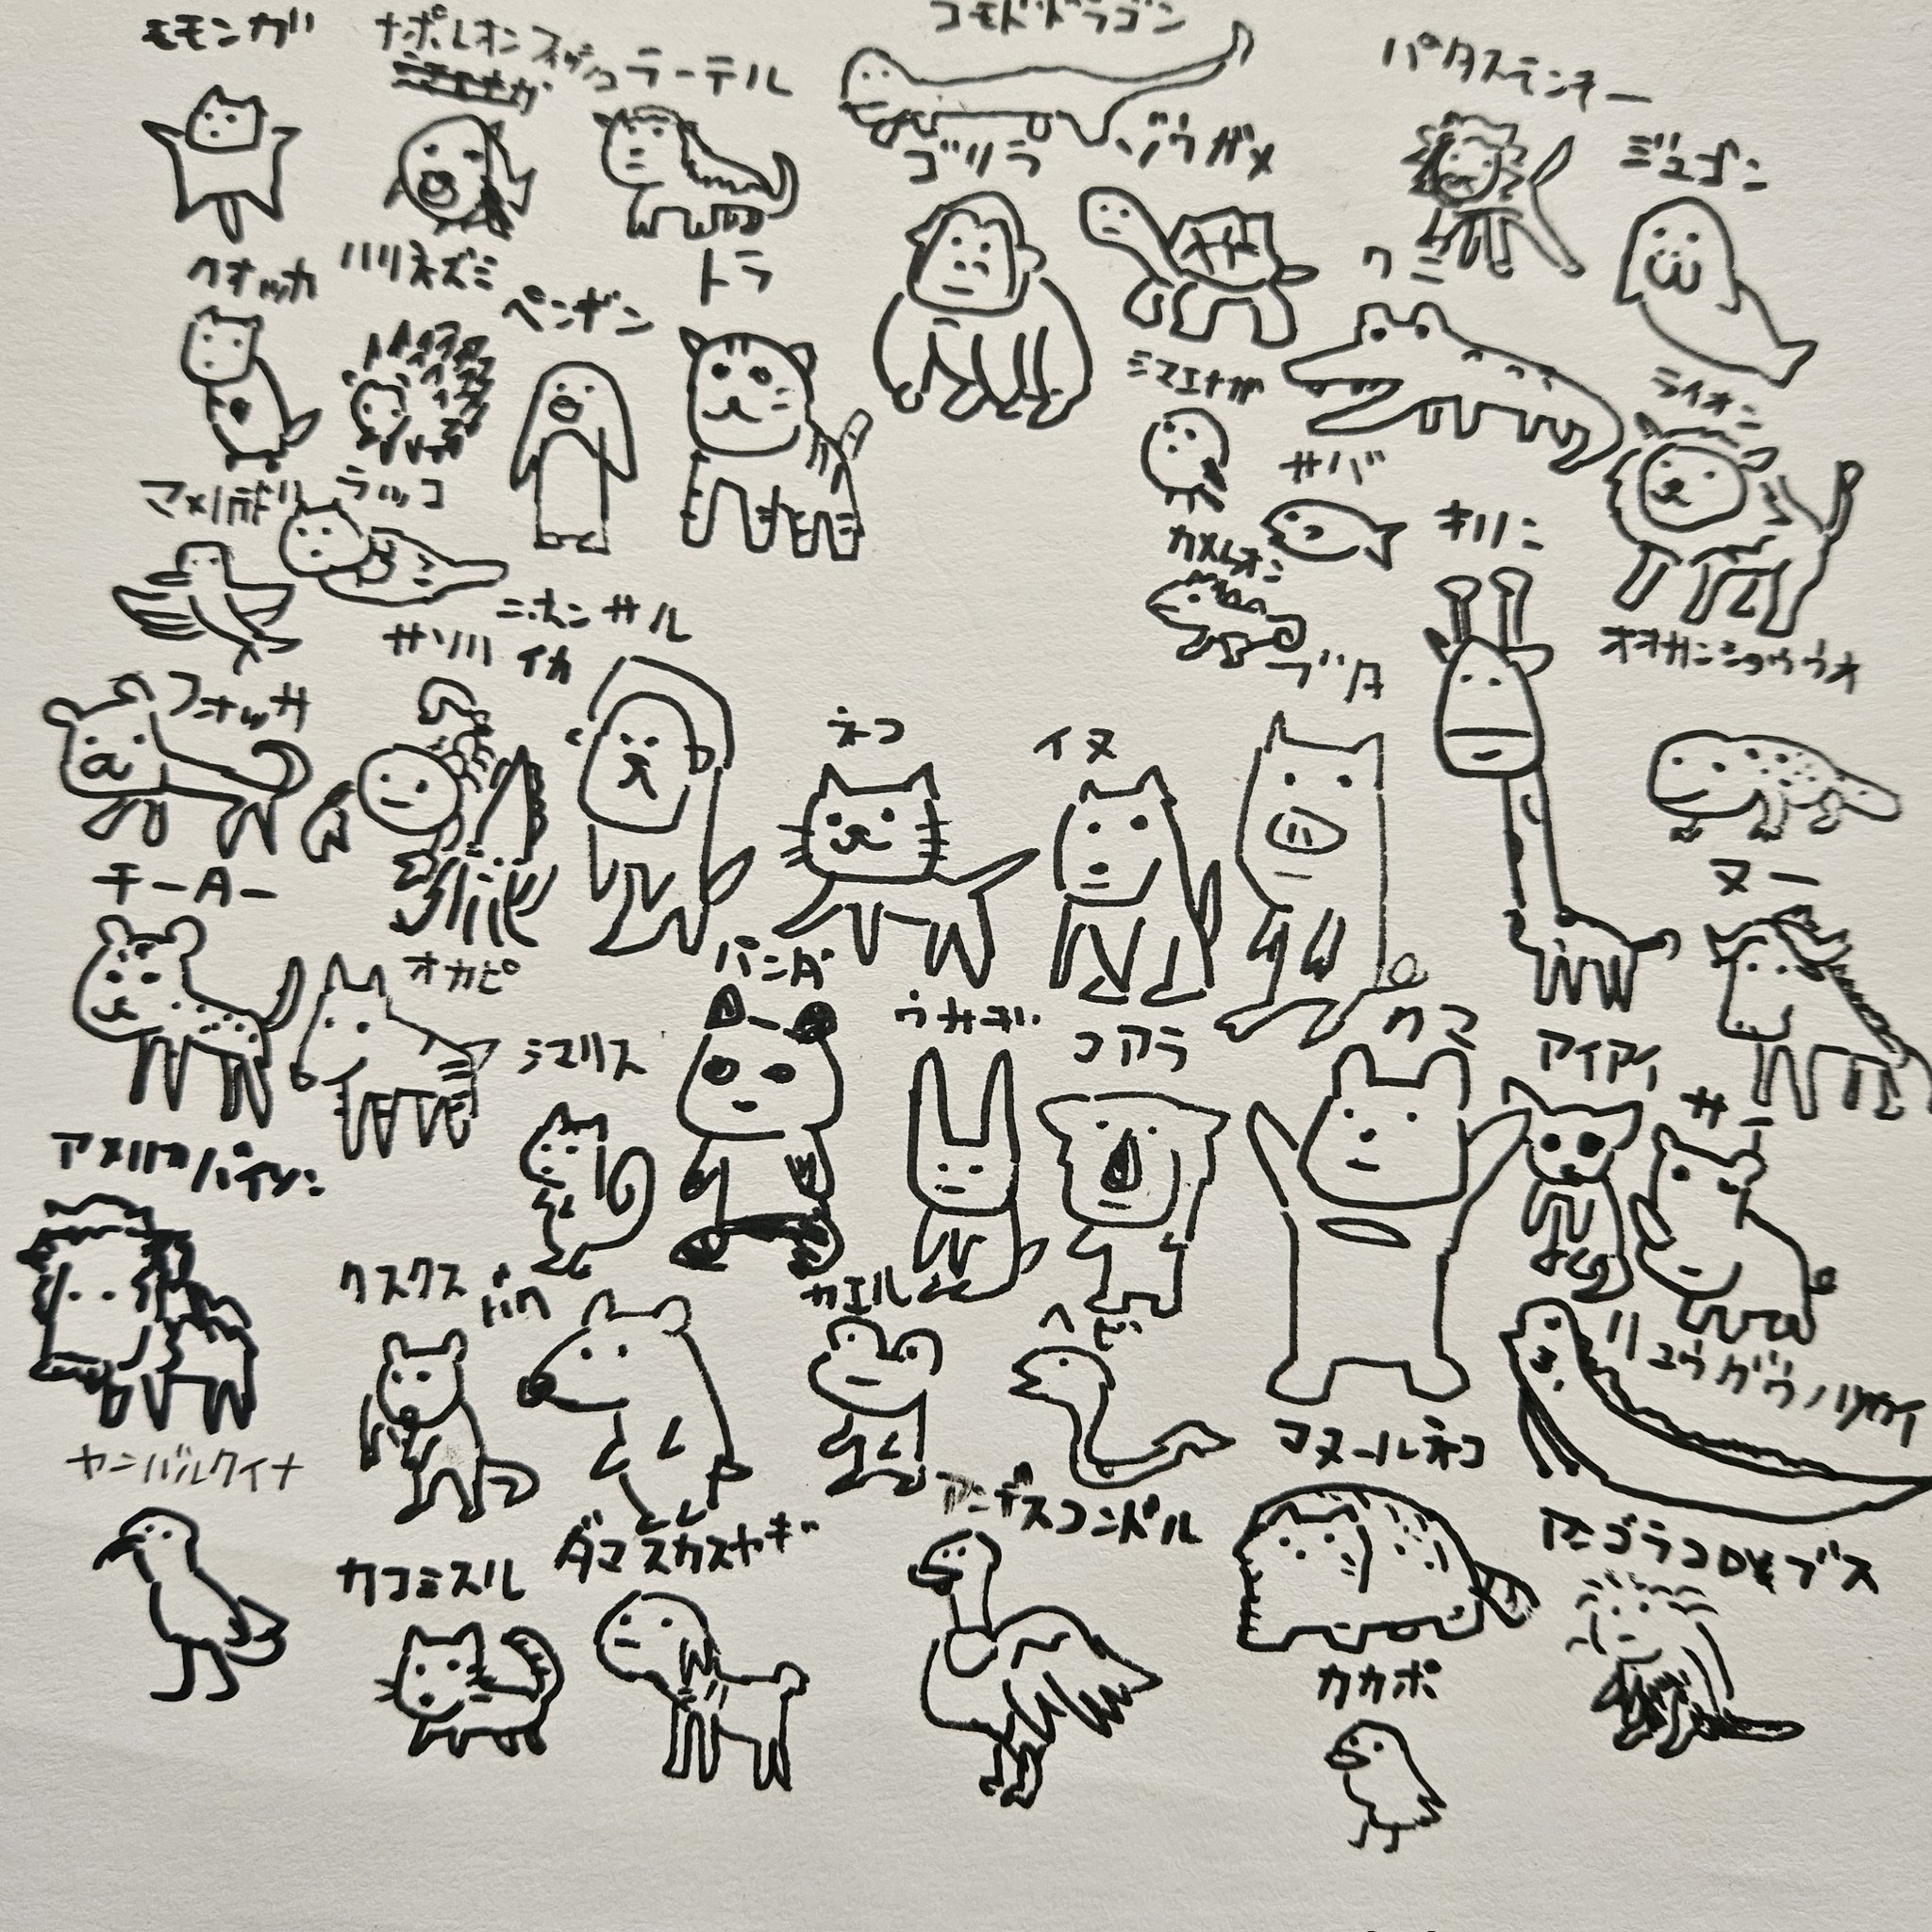 モモンガ
ナポレオンフィッシュ
ラーテル
コモドドラゴン
パタスモンキー
ゴリラ
ゾウガメ
ジュゴン
クオッカ
ハリネズミ
ペンギン
トラ
ワニ
シマエナガ
ライオン
ラッコ
サバ
キリン
カメレオン
ニホンザル
サソリ
イカ
ブタ
オオサンショウウオ
フォッサ
ネコ
イヌ
チーター
ヌー
オカピ
パンダ
ウサギ
コアラ
クマ
アイアイ
シマリス
サイ
アメリカバイソン
クスクス
バク
カエル
ヘビ
リュウグウノツカイ
ヤンバルクイナ
マヌールネコ
アンデスコンドル
カコミスル
ダマスカスヤギ
アンゴラコロブス
カカポ